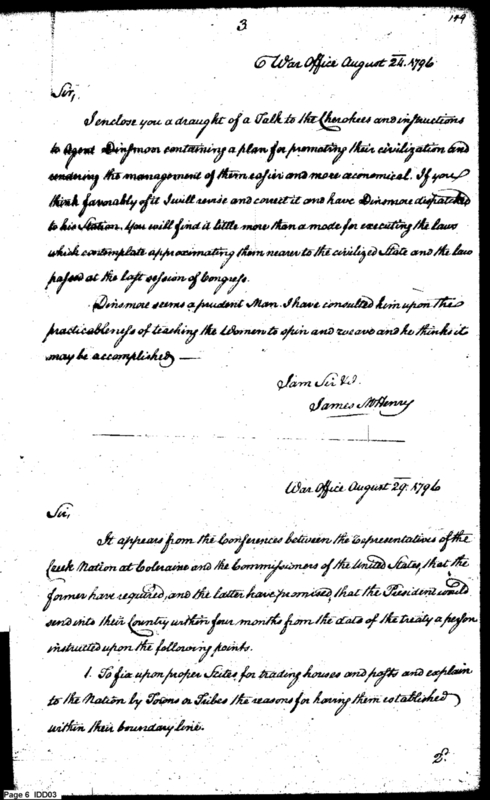 3
149
War Office August 24. 1796
Sir,
I enclose you a draught of a Talk to the Cherokees and instructions
to Agent Dinsmoor containing a plan for promoting their civilization and
rendering the management of them easier and more œconomical. If you
think favorably of it I will revise and correct it and have Dinsmore dispatched
to his Station. You will find it little more than a mode for executing the laws
which contemplate approximating them nearer to the civilized State and the law
passed at the last session of Congress.
Dinsmore seems a prudent Man. I have consulted him upon the
practicableness of teaching the Women to spin and weave and he thinks it
may be accomplished —
I am Sir &c.
James McHenry
War Office August 29. 1796
Sir,
It appears from the Conferences between the Representatives of the
Creek Nation at Coleraine and the Commissioners of the United States, that the
former have required, and the latter have promised, that the President would
send into their Country within four months from the date of the treaty a person
instructed upon the following points.
1. To fix upon proper Scites for trading houses and posts and explain
to the Nation by Towns or Tribes the reasons for having them established
within their boundary line.
2.
Page 6 IDD03